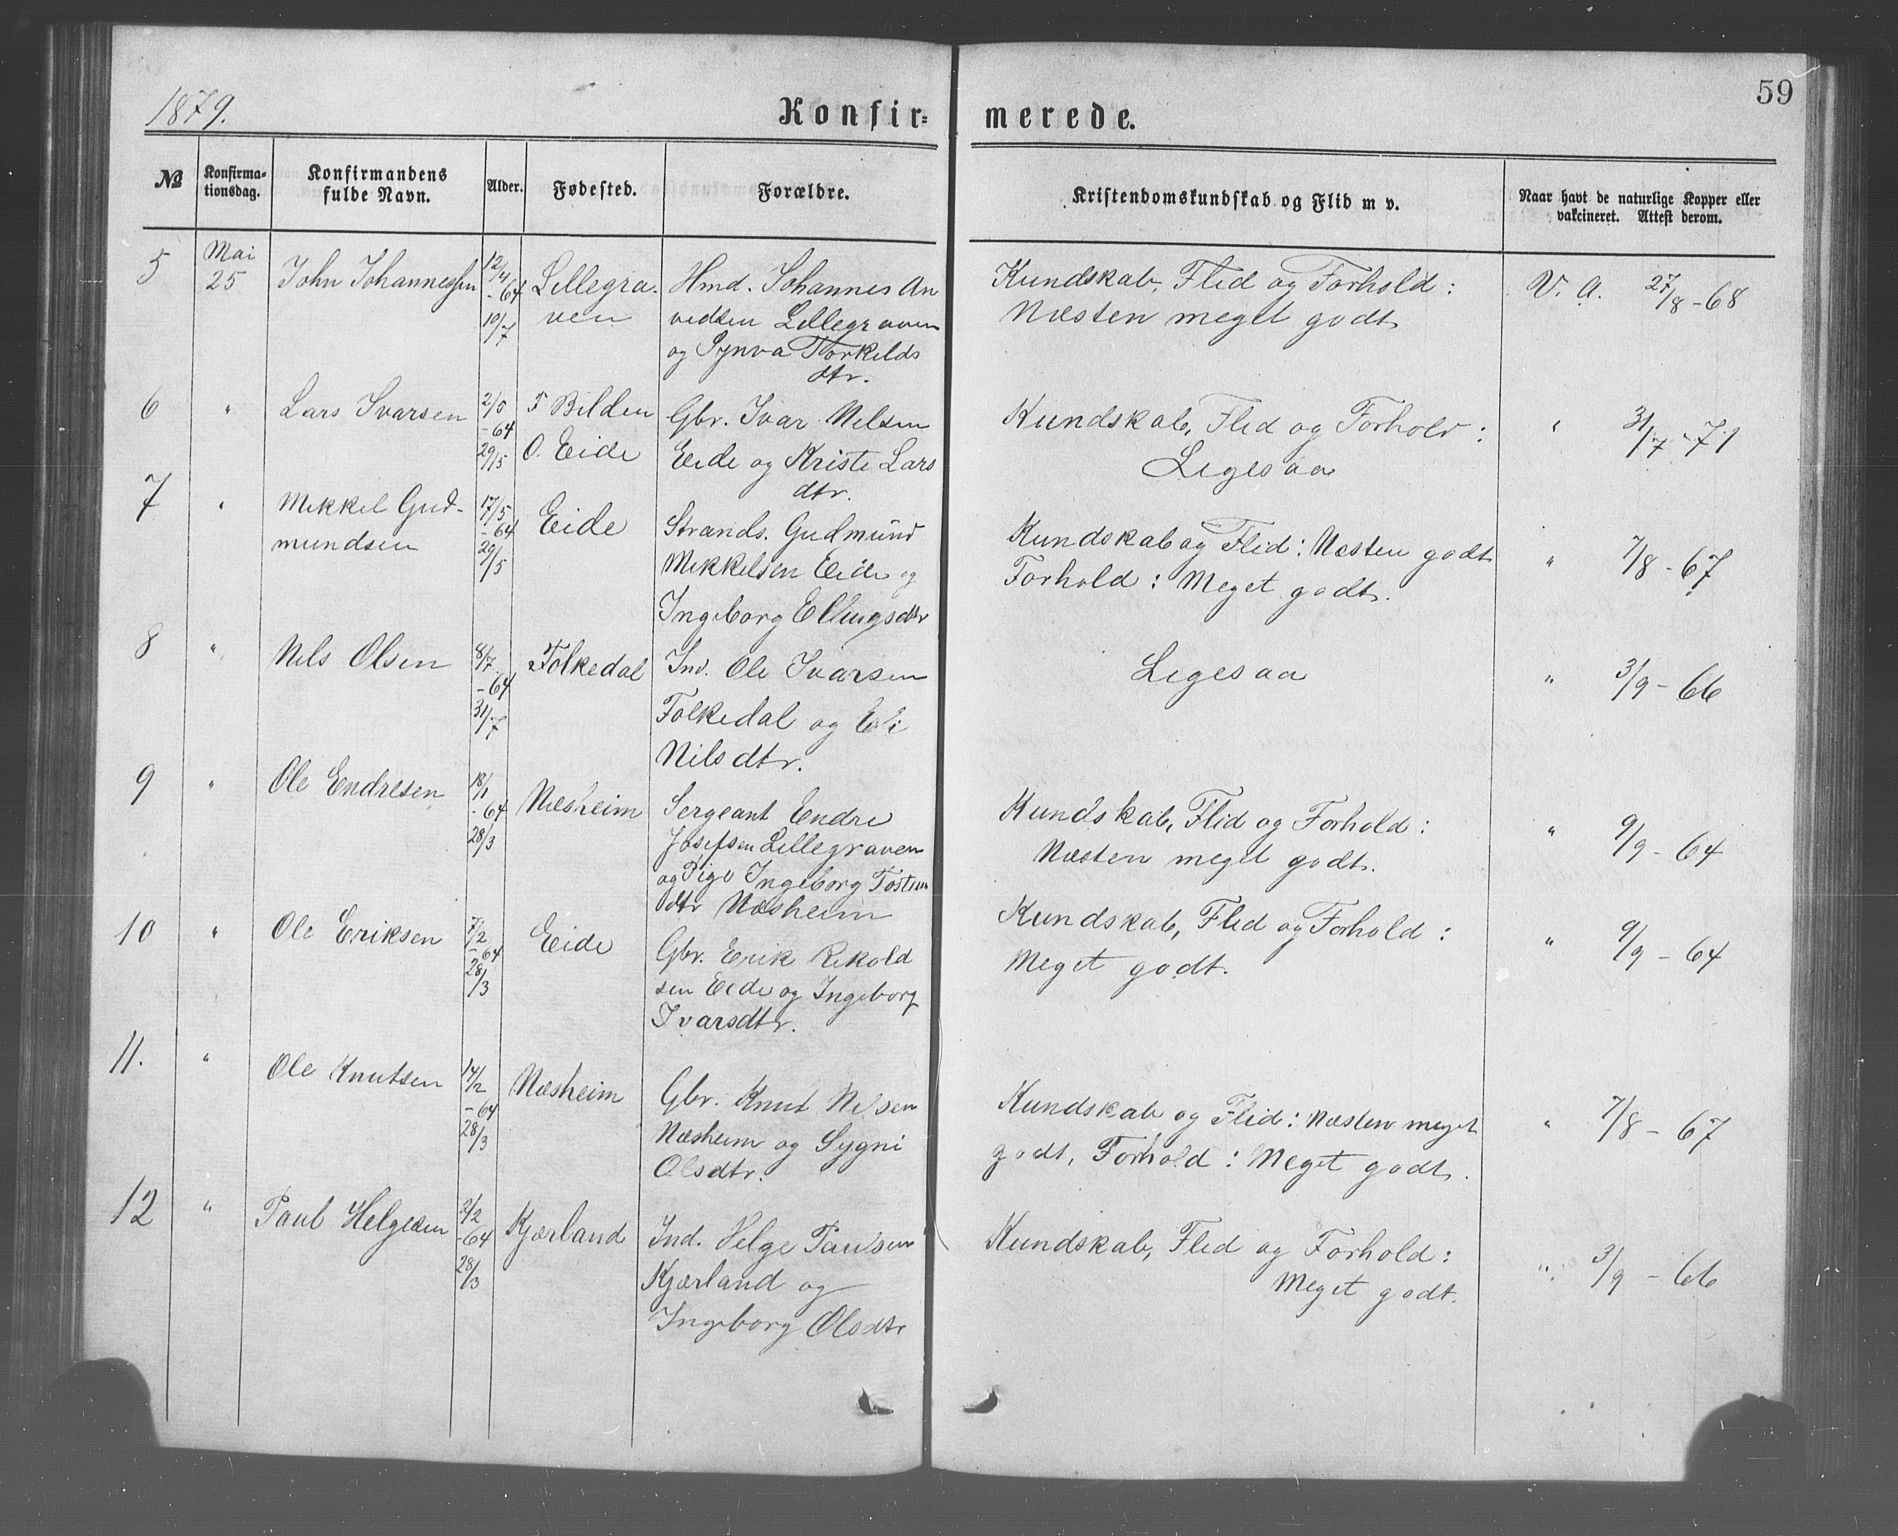 59
1879.
Konfir= merede.
№ Konfirma-tionsdag. Konfirmandens fulde Navn. Alder. Fødested. Forældre. Kristendomskundskab og Flid m v. Naar havt de naturlige Kopper eller vakcineret. Attest derom.
5 Mai 25 John Johannessen 12/4 -64 10/7 Lillegra. Hmd. Johannes An Kundskab, Flid og Forhold: V. A. 27/8 -68
ven vedsen Lillegraven Næsten meget godt
og Synva Torkilds
dtr.
6 " Lars Ivarsen 2/5 -64 29/5 F Bilden Gbr. Ivar Nilsen Kundskab, Flid og Forhold: " 31/7 -71
O. Eide Eide og Kristi Lars Ligesaa
dtr.
7 " Mikkel Gud- 17/5 -64 29/5 Eide Strands. Gudmund Kundskab og Flid: Næsten godt " 7/8 -67
mundsen Mikkelsen Eide og Forhold: Meget godt.
Ingeborg Ellingsdtr
8 " Nils Olsen 8/7 -64 31/7 Folkedal Ind. Ole Ivarsen Ligesaa " 3/9 -66
Folkedal og Eli
Nilsdtr.
9 " Ole Endresen 18/1 -64 28/3 Næsheim Sergeant Endre Kundskab, Flid og Forhold: " 9/9 -64
Josefsen Lillegraven Næsten meget godt.
og Pige Ingeborg Tosten
dtr Næsheim
10 " Ole Eriksen 7/2 -64 28/3 Eide Gbr. Erik Rekold Kundskab, Flid og Forhold: " 9/9 -64
sen Eide og Ingeborg Meget godt.
Ivarsdtr.
11. " Ole Knutsen 14/2 -64 28/3 Næsheim Gbr. Knut Nilsen Kundskab og Flid: Næsten meget " 7/8 -67
Næsheim og Sygni godt, Forhold: Meget godt.
Olsdtr.
12 " Paul Helgesen 2/2 -64 28/3 Kjærland Ind. Helge Paulsen Kundskab, Flid og Forhold: " 3/9 -66
Kjærland og Meget godt.
Ingeborg Olsdtr